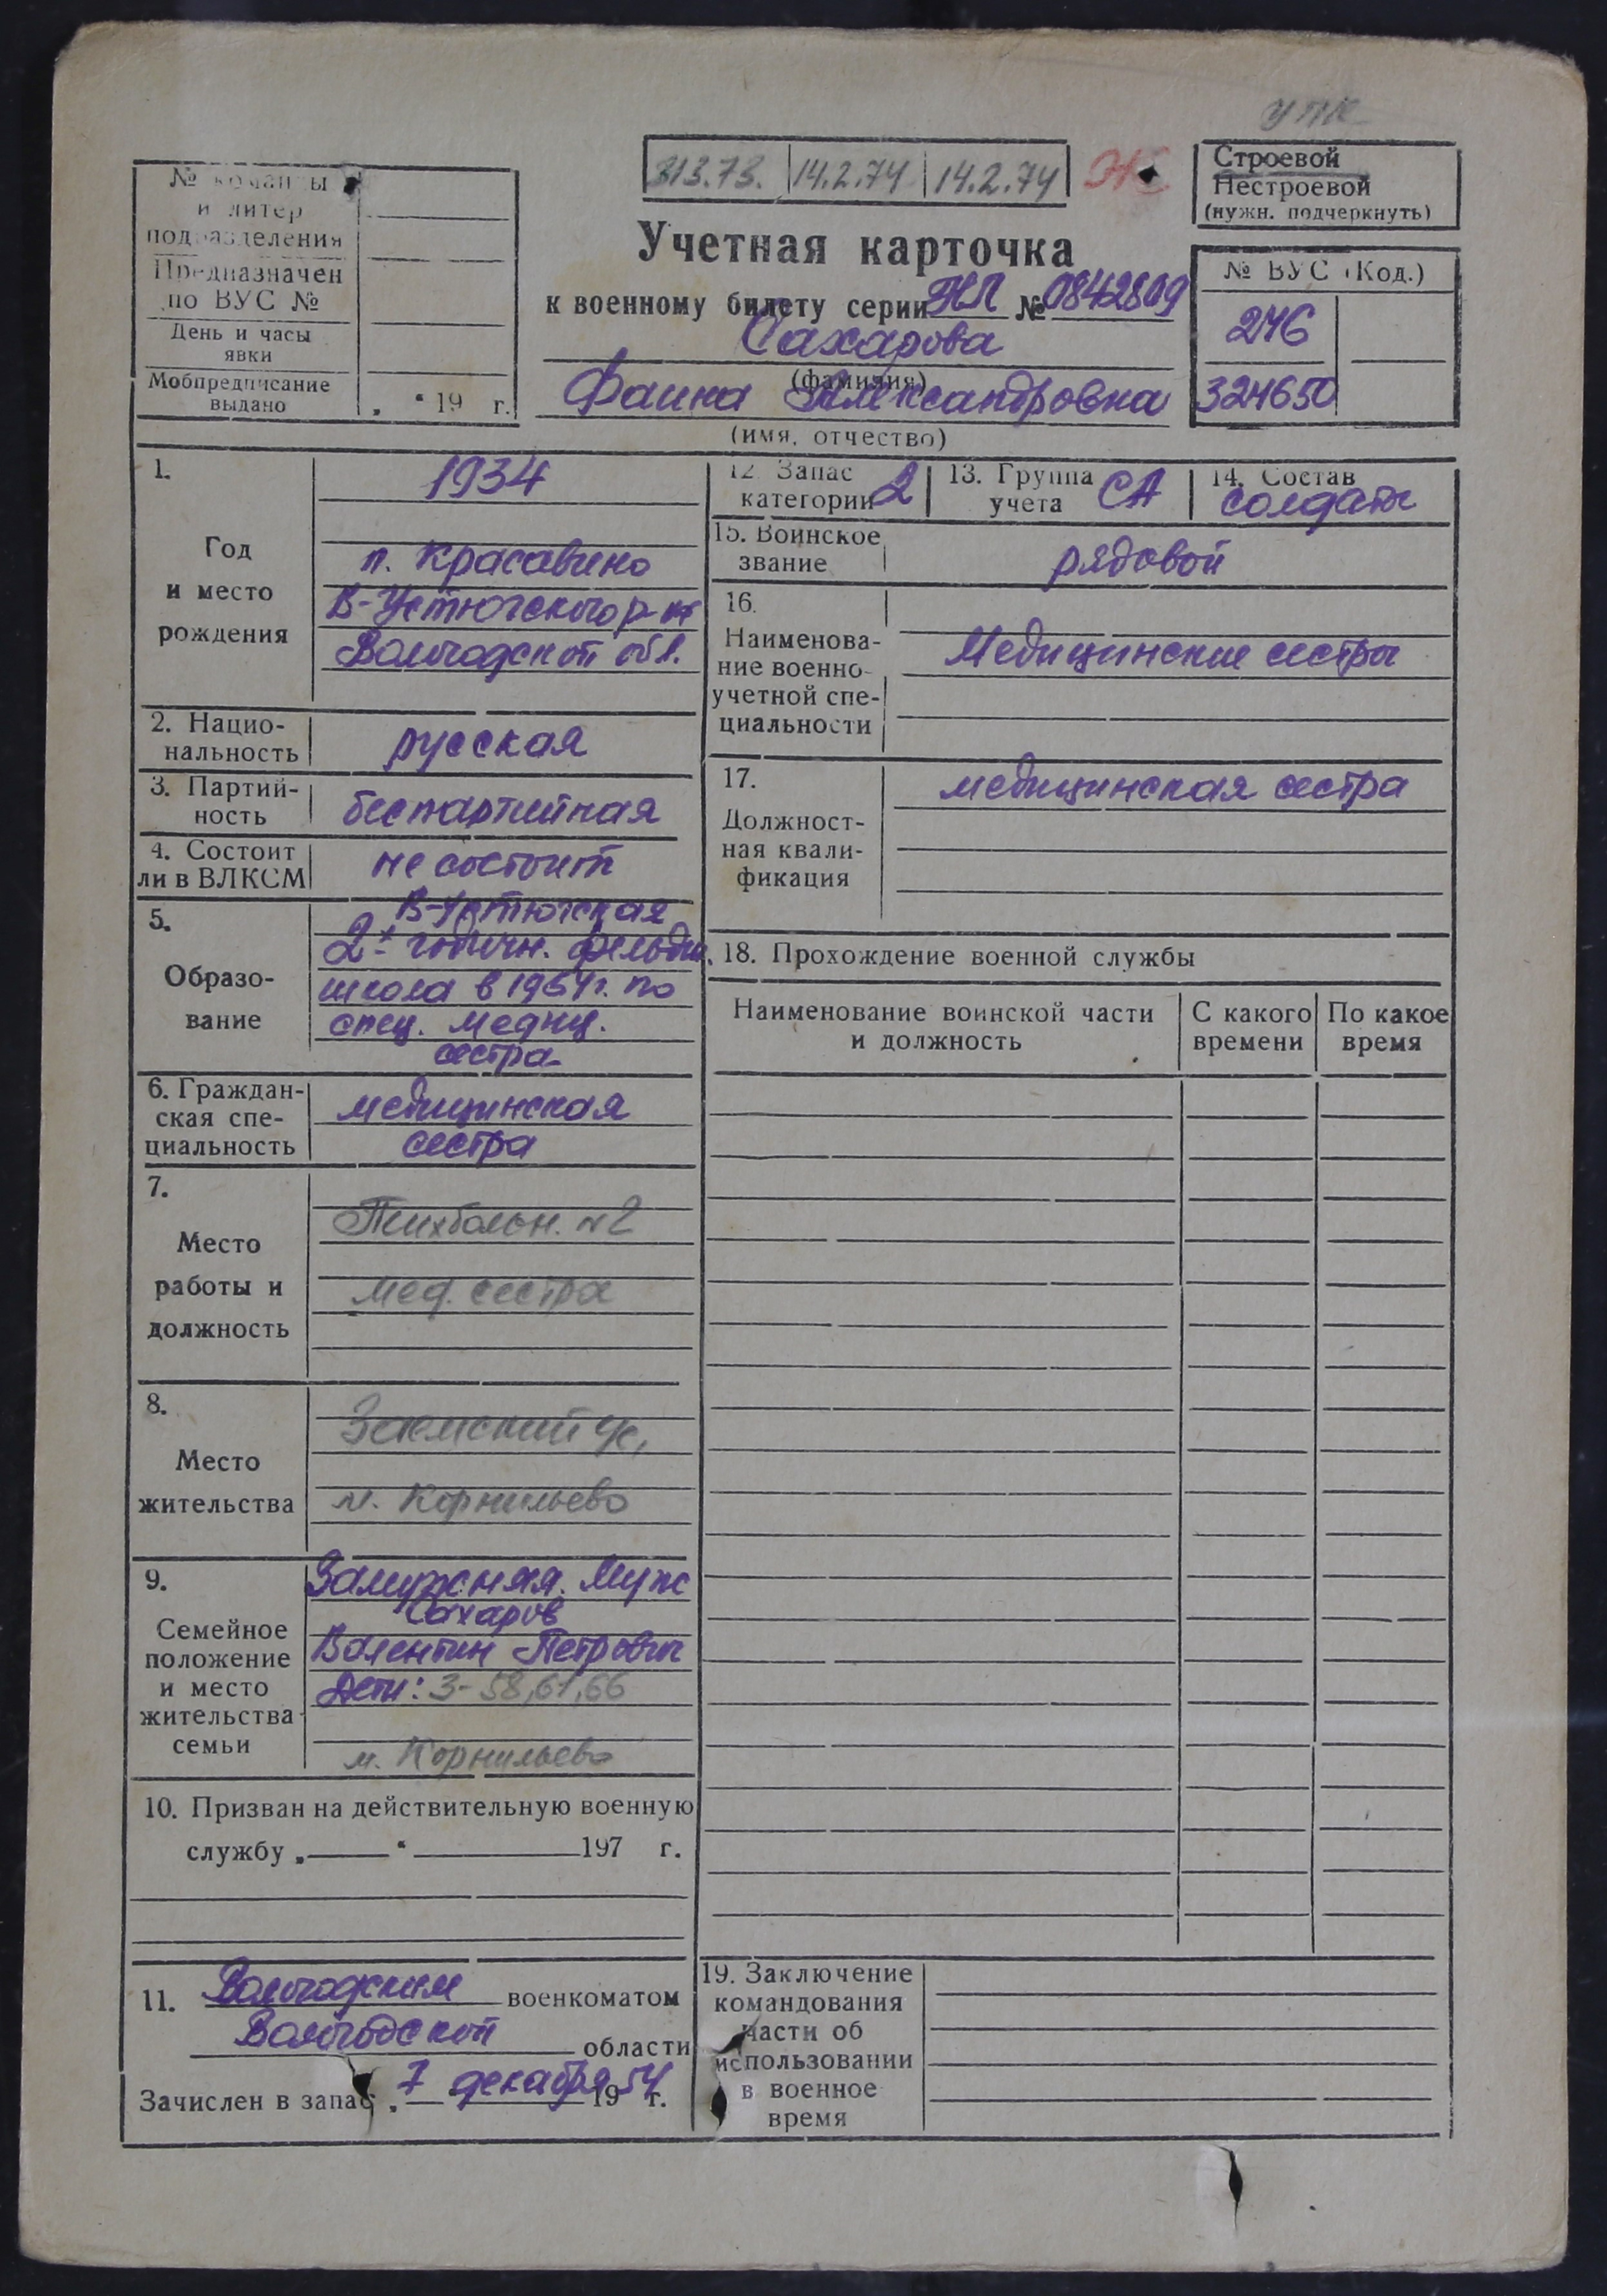 упк
313.73. 14.2.74 14.2.74 Ж
Строевой
Нестроевой
(нужн. подчеркнуть)
№ команды
и литер
подразделения
Предназначен
по ВУС №
День и часы
явки
Мобпредписание
выдано „ “ 19 г.
Учетная карточка
к военному билету серии НЛ № 0842809
Сахарова
(фамилия)
Фаина Александровна
(имя, отчество)
№ ВУС (Код.)
246
324650
1.
Год
и место
рождения
1934
п. Красавино
В-Устюгского р-на
Вологодской обл.
2. Нацио-
нальность
русская
3. Партий-
ность
беспартейная
4. Состоит
ли в ВЛКСМ
не состоит
5.
Образо-
вание
В-Устюгская
2х годичн. фельдш.
школа в 1954г. по
спец. медиц.
сестра
6. Граждан-
ская спе-
циальность
медицинская
сестра
7.
Место
работы и
должность
Психбольн. №2
мед. сестра
8.
Место
жительства
м. Корнильево
9.
Семейное
положение
и место
жительства
семьи
Замужняя. Муж
Сахаров
Валентин Петрович
Дети: 3-58,61,66
м. Корнильево
10. Призван на действительную военную
службу „ “ 197 г.
11. Вологодским военкоматом
Вологодской области
Зачислен в запас „ 7 декабря 1954 г.
12. Запас
категории 2
13. Группа
учета СА
14. Состав
солдаты
15. Воинское
звание
рядовой
16.
Наименова-
ние военно-
учетной спе-
циальности
Медицинские сестры
17.
Должност-
ная квали-
фикация
медицинская сестра
18. Прохождение военной службы
Наименование воинской части
и должность
С какого
времени
По какое
время
19. Заключение
командования
части об
использовании
в военное
время